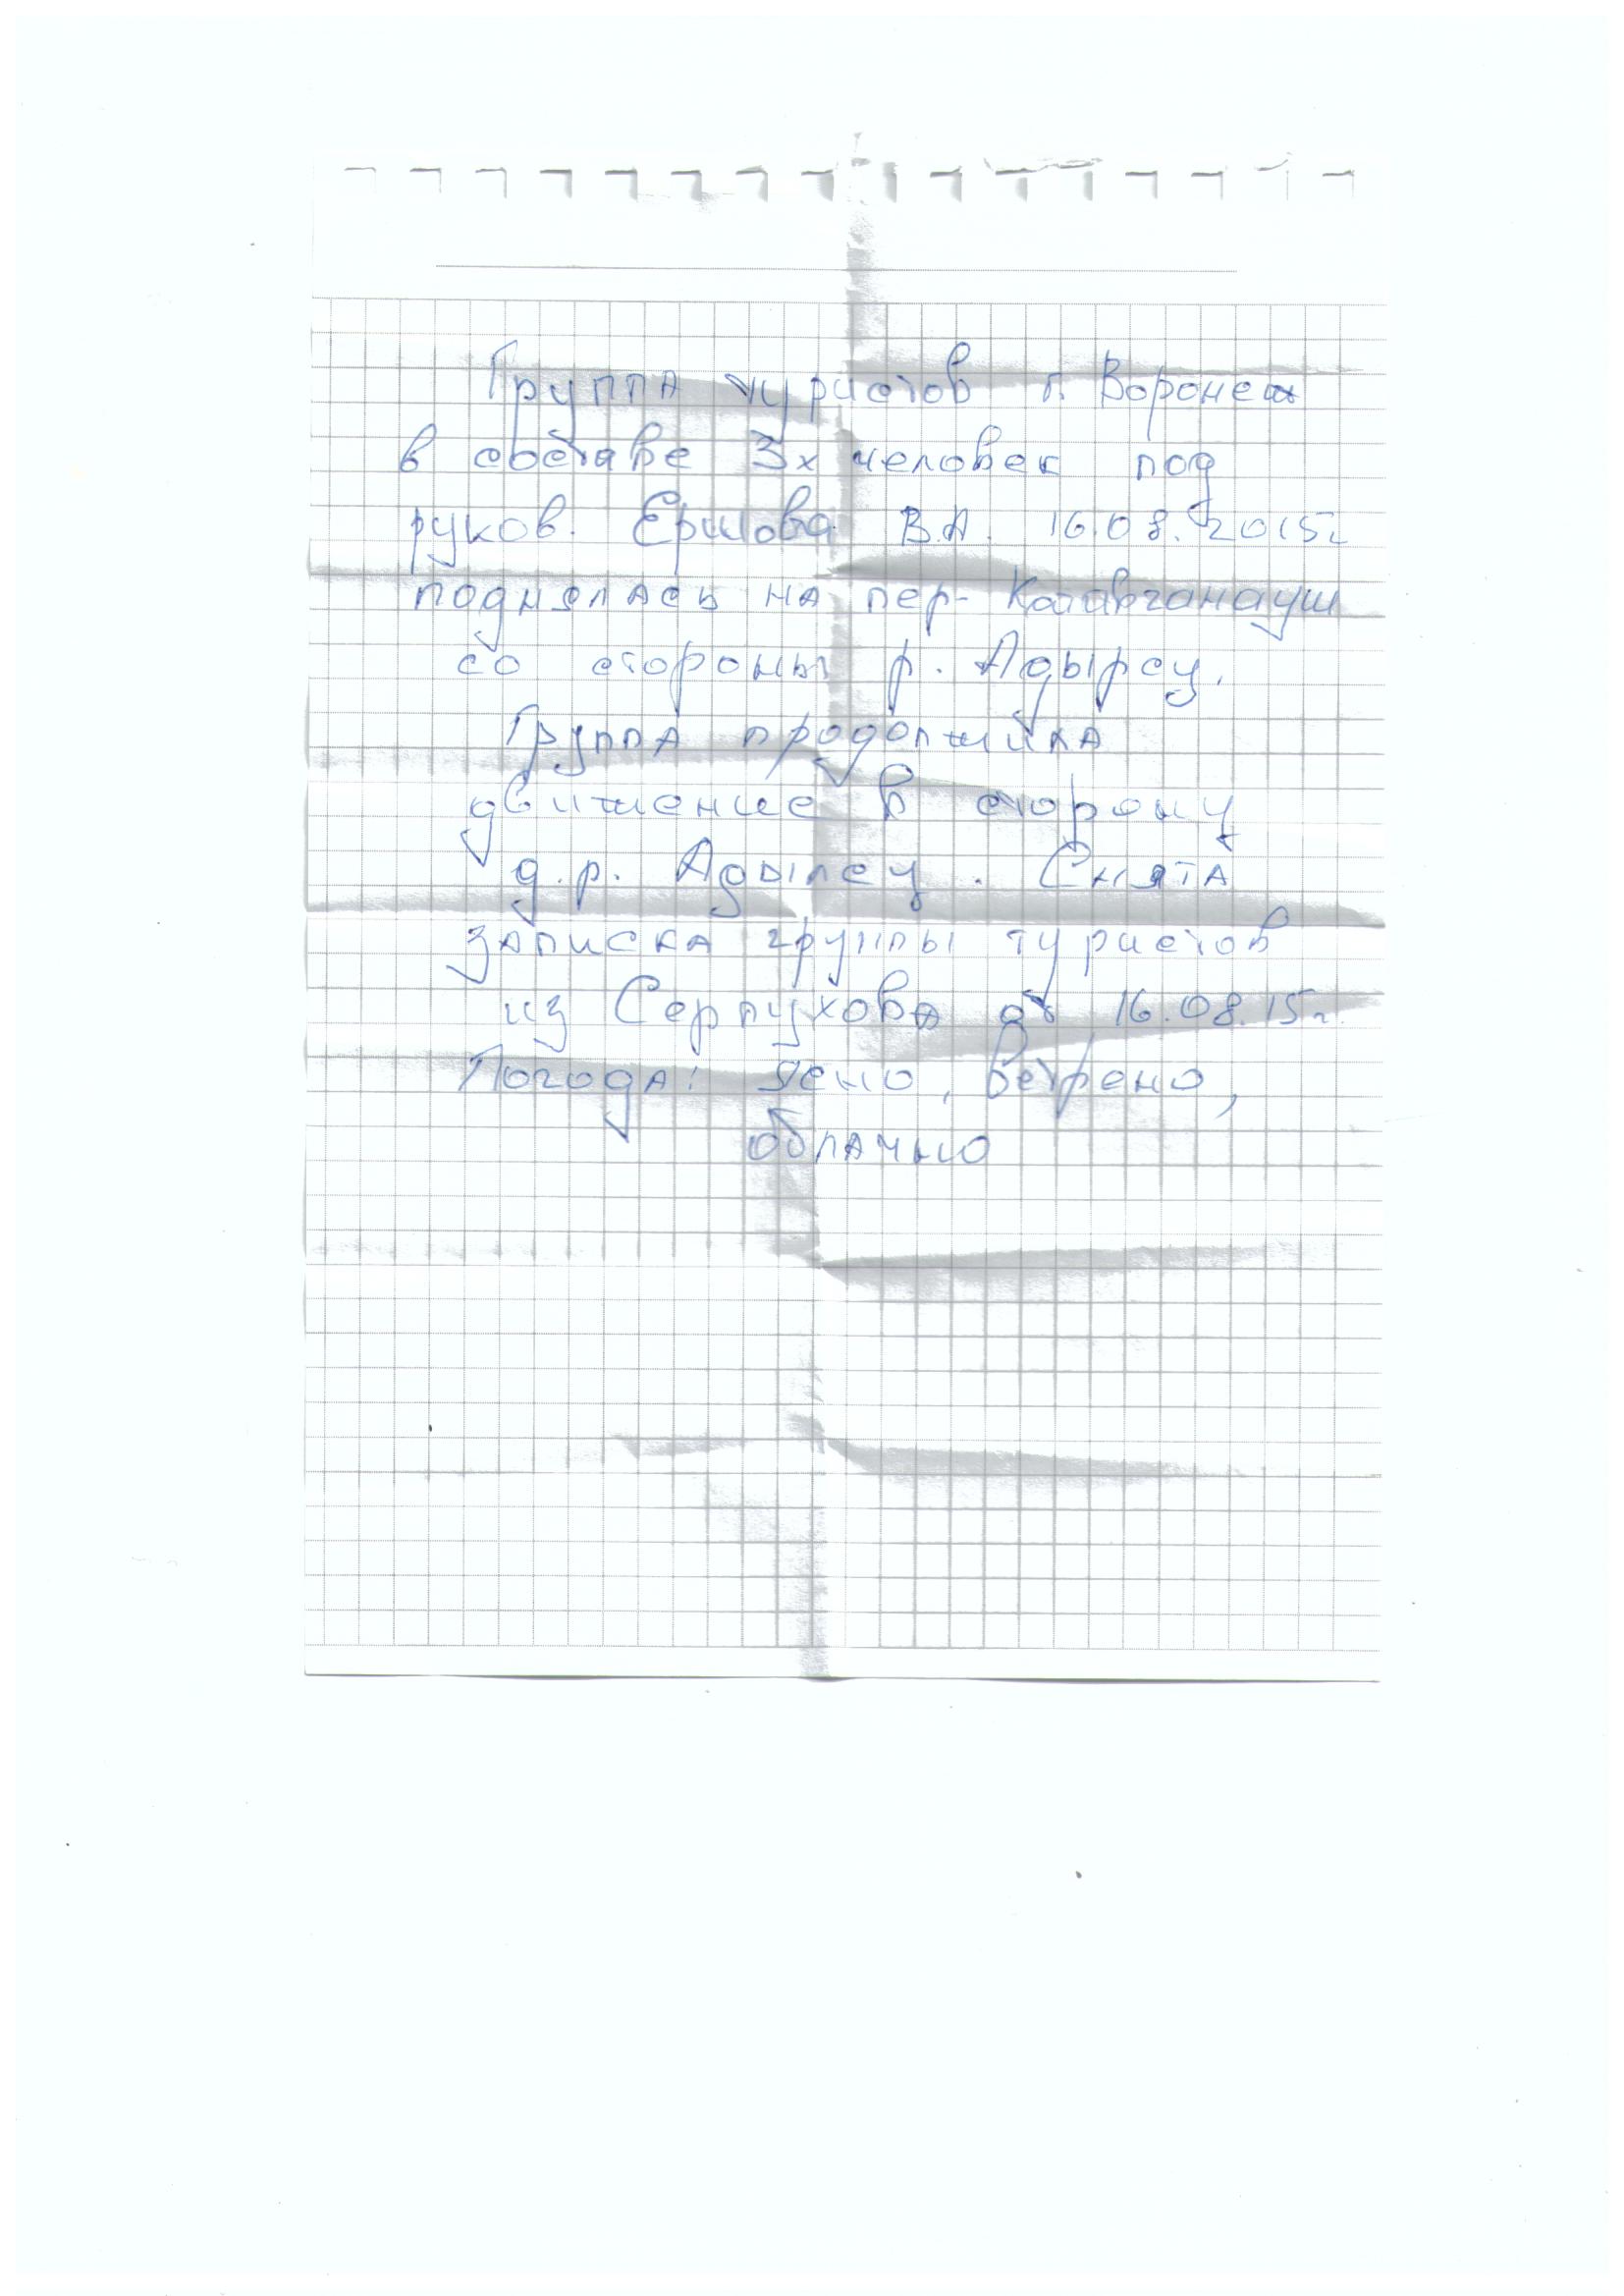 Группа туристов г. Воронеж
в составе 3х человек под
руков. Ершова В.А. 16.08.2015г
поднялась на пер- Койавганауш
со стороны р. Адырсу.
Группа продолжила
движение в сторону
д.р. Адылсу. Снята
записка группы туристов
из Серпухова от 16.08.15г.
Погода: Ясно, Ветрено,
облачно